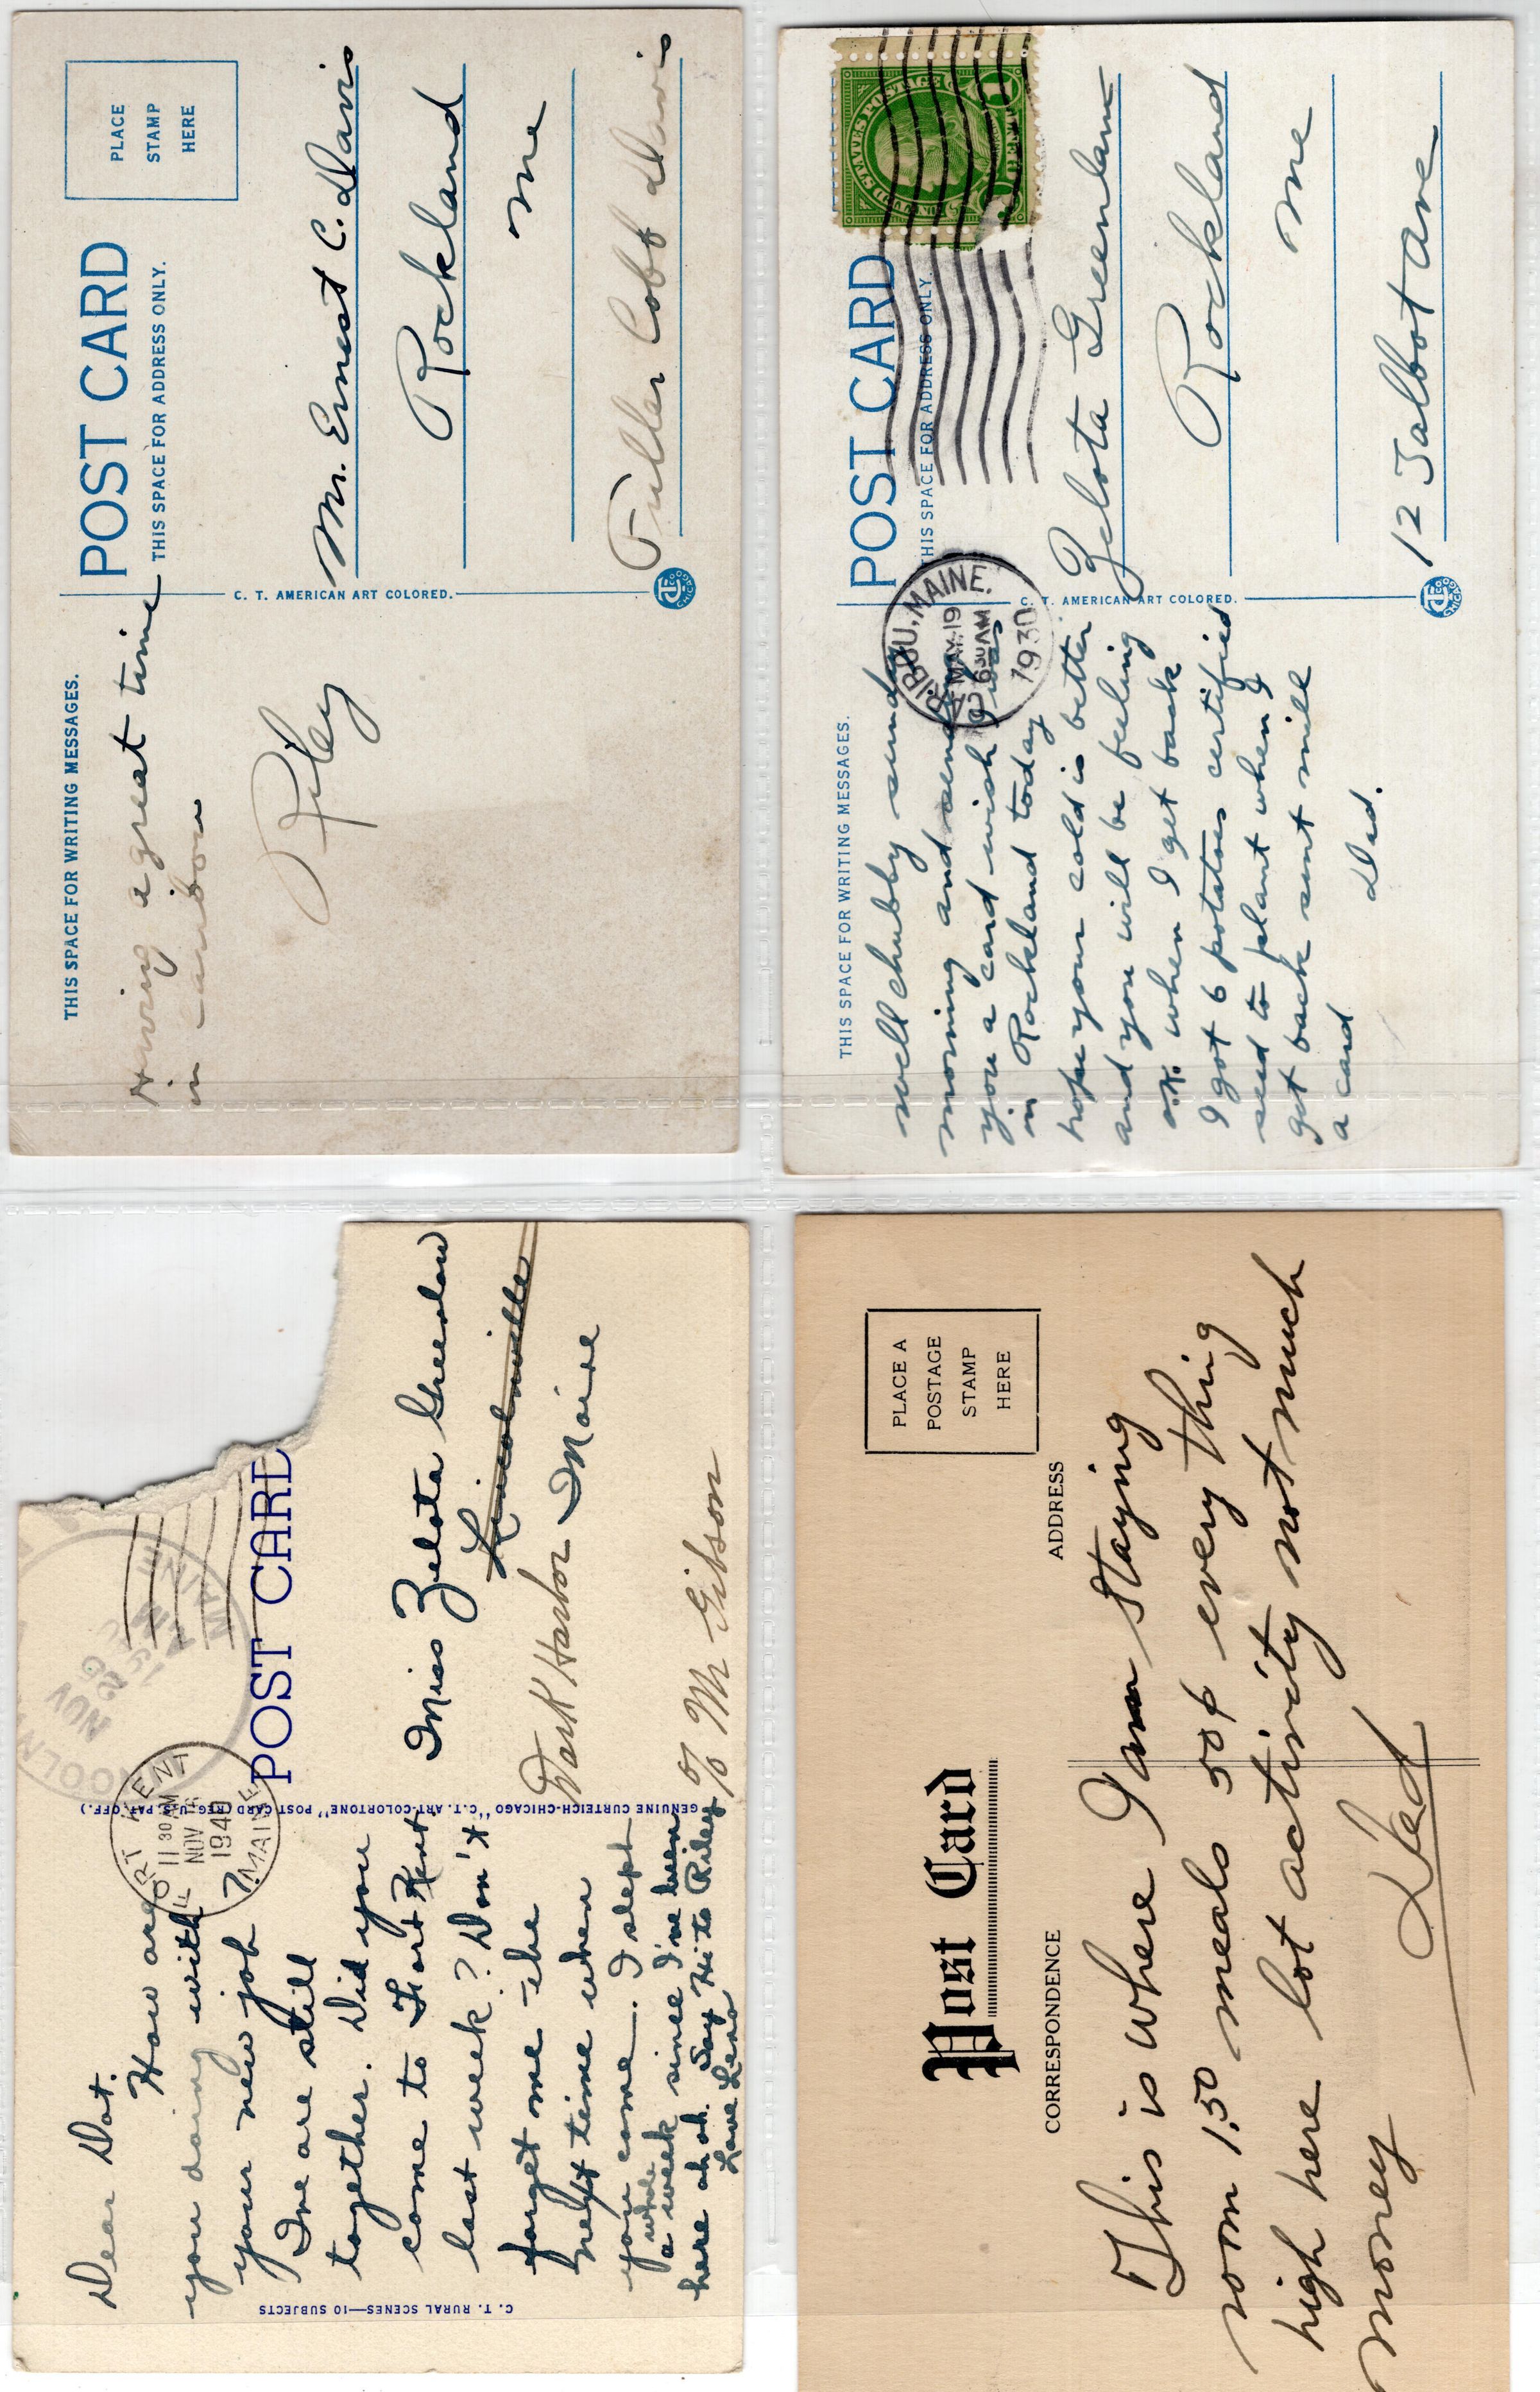 THIS SPACE FOR WRITING MESSAGES.
POST CARD
THIS SPACE FOR ADDRESS ONLY.
PLACE
STAMP
HERE
Having a great time
in caribou
Riley
C. T. AMERICAN ART COLORED.
Mr. Ernest C. Davis
Rockland
me
Fuller Cobb Davis
THIS SPACE FOR WRITING MESSAGES.
POST CARD
THIS SPACE FOR ADDRESS ONLY.
CARIBOU, MAINE.
MAY 19
630 AM
1930
well chubby sunday
morning and send
you a card wish I was
in Rockland today
hope your cold is better
and you will be feeling
o.k. when I get back
I got 6 potatoes certified
seed to plant when I
get back sunt mill
a card
Dad.
C. T. AMERICAN ART COLORED.
Zelota Greenlaw
Rockland
me
12 Talbot Ave
POST CARD
FORT KENT
11 30 AM
NOV 16
1940
MAINE
NOV
AM
MAINE
Dear Dot.
How are
you doing with
your new job?
Ine are still
together. Did you
come to Fort Kent
last week? Don't
forget me the
next time when
you come. I slept
a whole week since I've been
here ah ah. Say Hi to Riley
Love Lena
GENUINE CURTEICH-CHICAGO "C.T. ART-COLORTONE" POST CARD (REG. U.S. PAT. OFF.)
C. T. RURAL SCENES—10 SUBJECTS
Miss Zelota Greenlaw
Lincolnville
Dark Harbor Maine
% Mr Gibson
Post Card
CORRESPONDENCE
ADDRESS
PLACE A
POSTAGE
STAMP
HERE
This is where I am staying
room 1.50 meals 50¢ every thing
high here lot activity not much
money
Dad